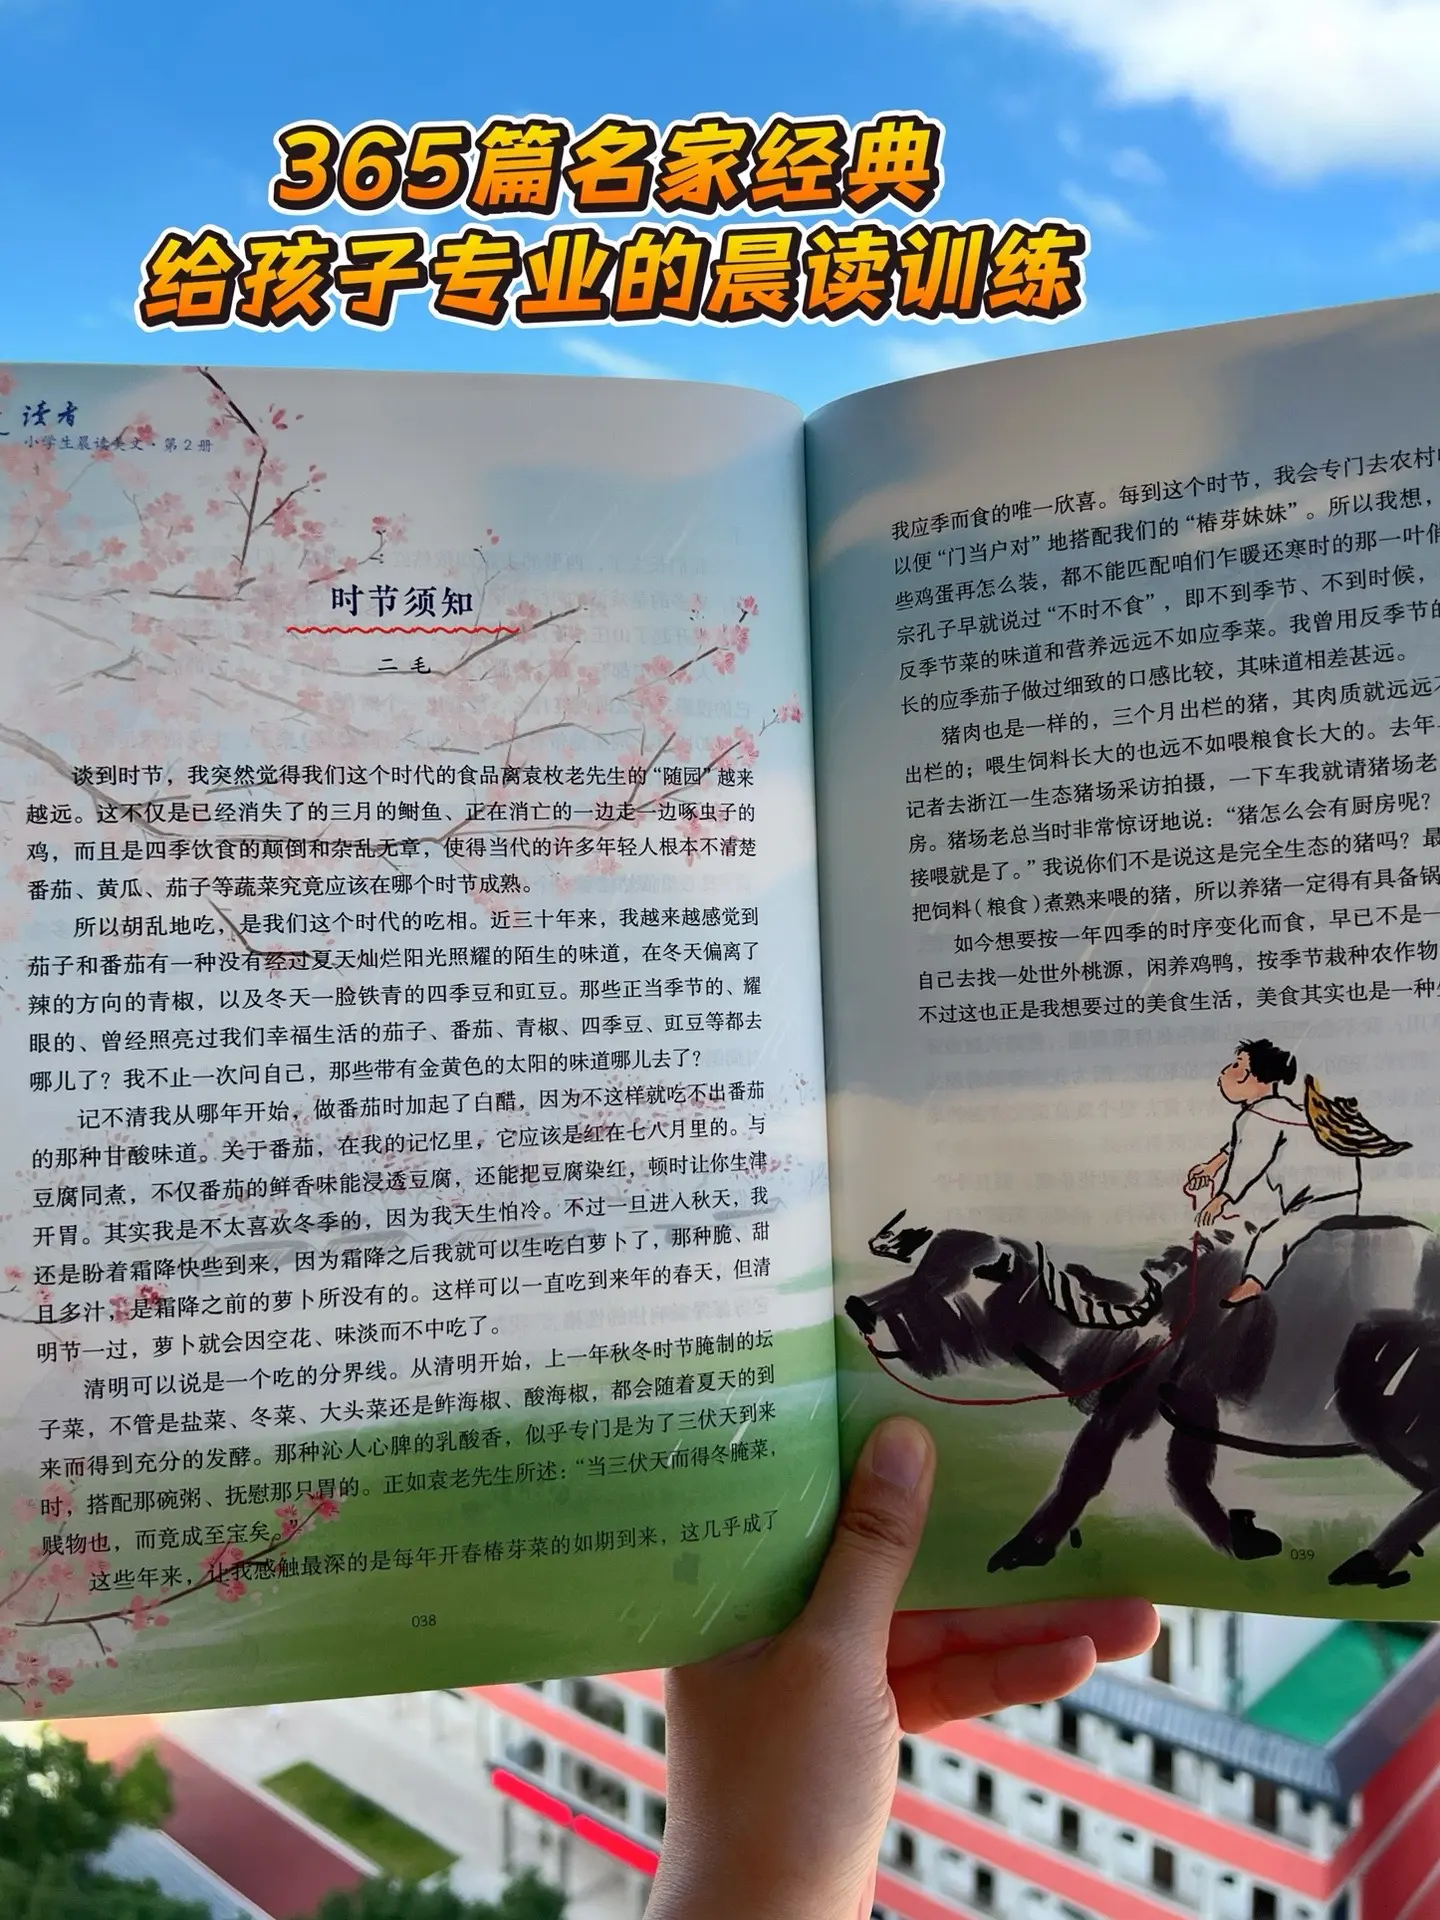 365篇名家经典
给孩子专业的晨读训练
读者
小学生晨读美文·第2册
时节须知
二毛
谈到时节，我突然觉得我们这个时代的食品离袁枚老先生的“随园”越来
越远。这不仅是已经消失了的三月的鲥鱼、正在消亡的一边走一边啄虫子的
鸡，而且是四季饮食的颠倒和杂乱无章，使得当代的许多年轻人根本不清楚
番茄、黄瓜、茄子等蔬菜究竟应该在哪个时节成熟。
所以胡乱地吃，是我们这个时代的吃相。近三十年来，我越来越感觉到
茄子和番茄有一种没有经过夏天灿烂阳光照耀的陌生的味道，在冬天偏离了
辣的方向的青椒，以及冬天一脸铁青的四季豆和豇豆。那些正当季节的、耀
眼的、曾经照亮过我们幸福生活的茄子、番茄、青椒、四季豆、豇豆等都去
哪儿了？我不止一次问自己，那些带有金黄色的太阳的味道哪儿去了？
记不清我从哪年开始，做番茄时加起了白醋，因为不这样就吃不出番茄
的那种甘酸味道。关于番茄，在我的记忆里，它应该是红在七八月里的。与
豆腐同煮，不仅番茄的鲜香味能浸透豆腐，还能把豆腐染红，顿时让你生津
开胃。其实我是不太喜欢冬季的，因为我天生怕冷。不过一旦进入秋天，我
还是盼着霜降快些到来，因为霜降之后我就可以生吃白萝卜了，那种脆、甜
且多汁，是霜降之前的萝卜所没有的。这样可以一直吃到来年的春天，但清
明节一过，萝卜就会因空花、味淡而不中吃了。
清明可以说是一个吃的分界线。从清明开始，上一年秋冬时节腌制的坛
子菜，不管是盐菜、冬菜、大头菜还是鲊海椒、酸海椒，都会随着夏天的到
来而得到充分的发酵。那种沁人心脾的乳酸香，似乎专门是为了三伏天到来
时，搭配那碗粥、抚慰那只胃的。正如袁老先生所述：“当三伏天而得冬腌菜，
贱物也，而竟成至宝矣。”
这些年来，让我感触最深的是每年开春椿芽菜的如期到来，这几乎成了
038
我应季而食的唯一欣喜。每到这个时节，我会专门去农村
以便“门当户对”地搭配我们的“椿芽妹妹”。所以我想，
些鸡蛋再怎么装，都不能匹配咱们乍暖还寒时的那一叶俏
宗孔子早就说过“不时不食”，即不到季节、不到时候，
反季节菜的味道和营养远远不如应季菜。我曾用反季节的
长的应季茄子做过细致的口感比较，其味道相差甚远。
猪肉也是一样的，三个月出栏的猪，其肉质就远远不
出栏的；喂生饲料长大的也远不如喂粮食长大的。去年
记者去浙江一生态猪场采访拍摄，一下车我就请猪场老
房。猪场老总当时非常惊讶地说：“猪怎么会有厨房呢？
接喂就是了。”我说你们不是说这是完全生态的猪吗？最
把饲料（粮食）煮熟来喂的猪，所以养猪一定得有具备锅
如今想要按一年四季的时序变化而食，早已不是一
自己去找一处世外桃源，闲养鸡鸭，按季节栽种农作物
不过这也正是我想要过的美食生活，美食其实也是一种
039